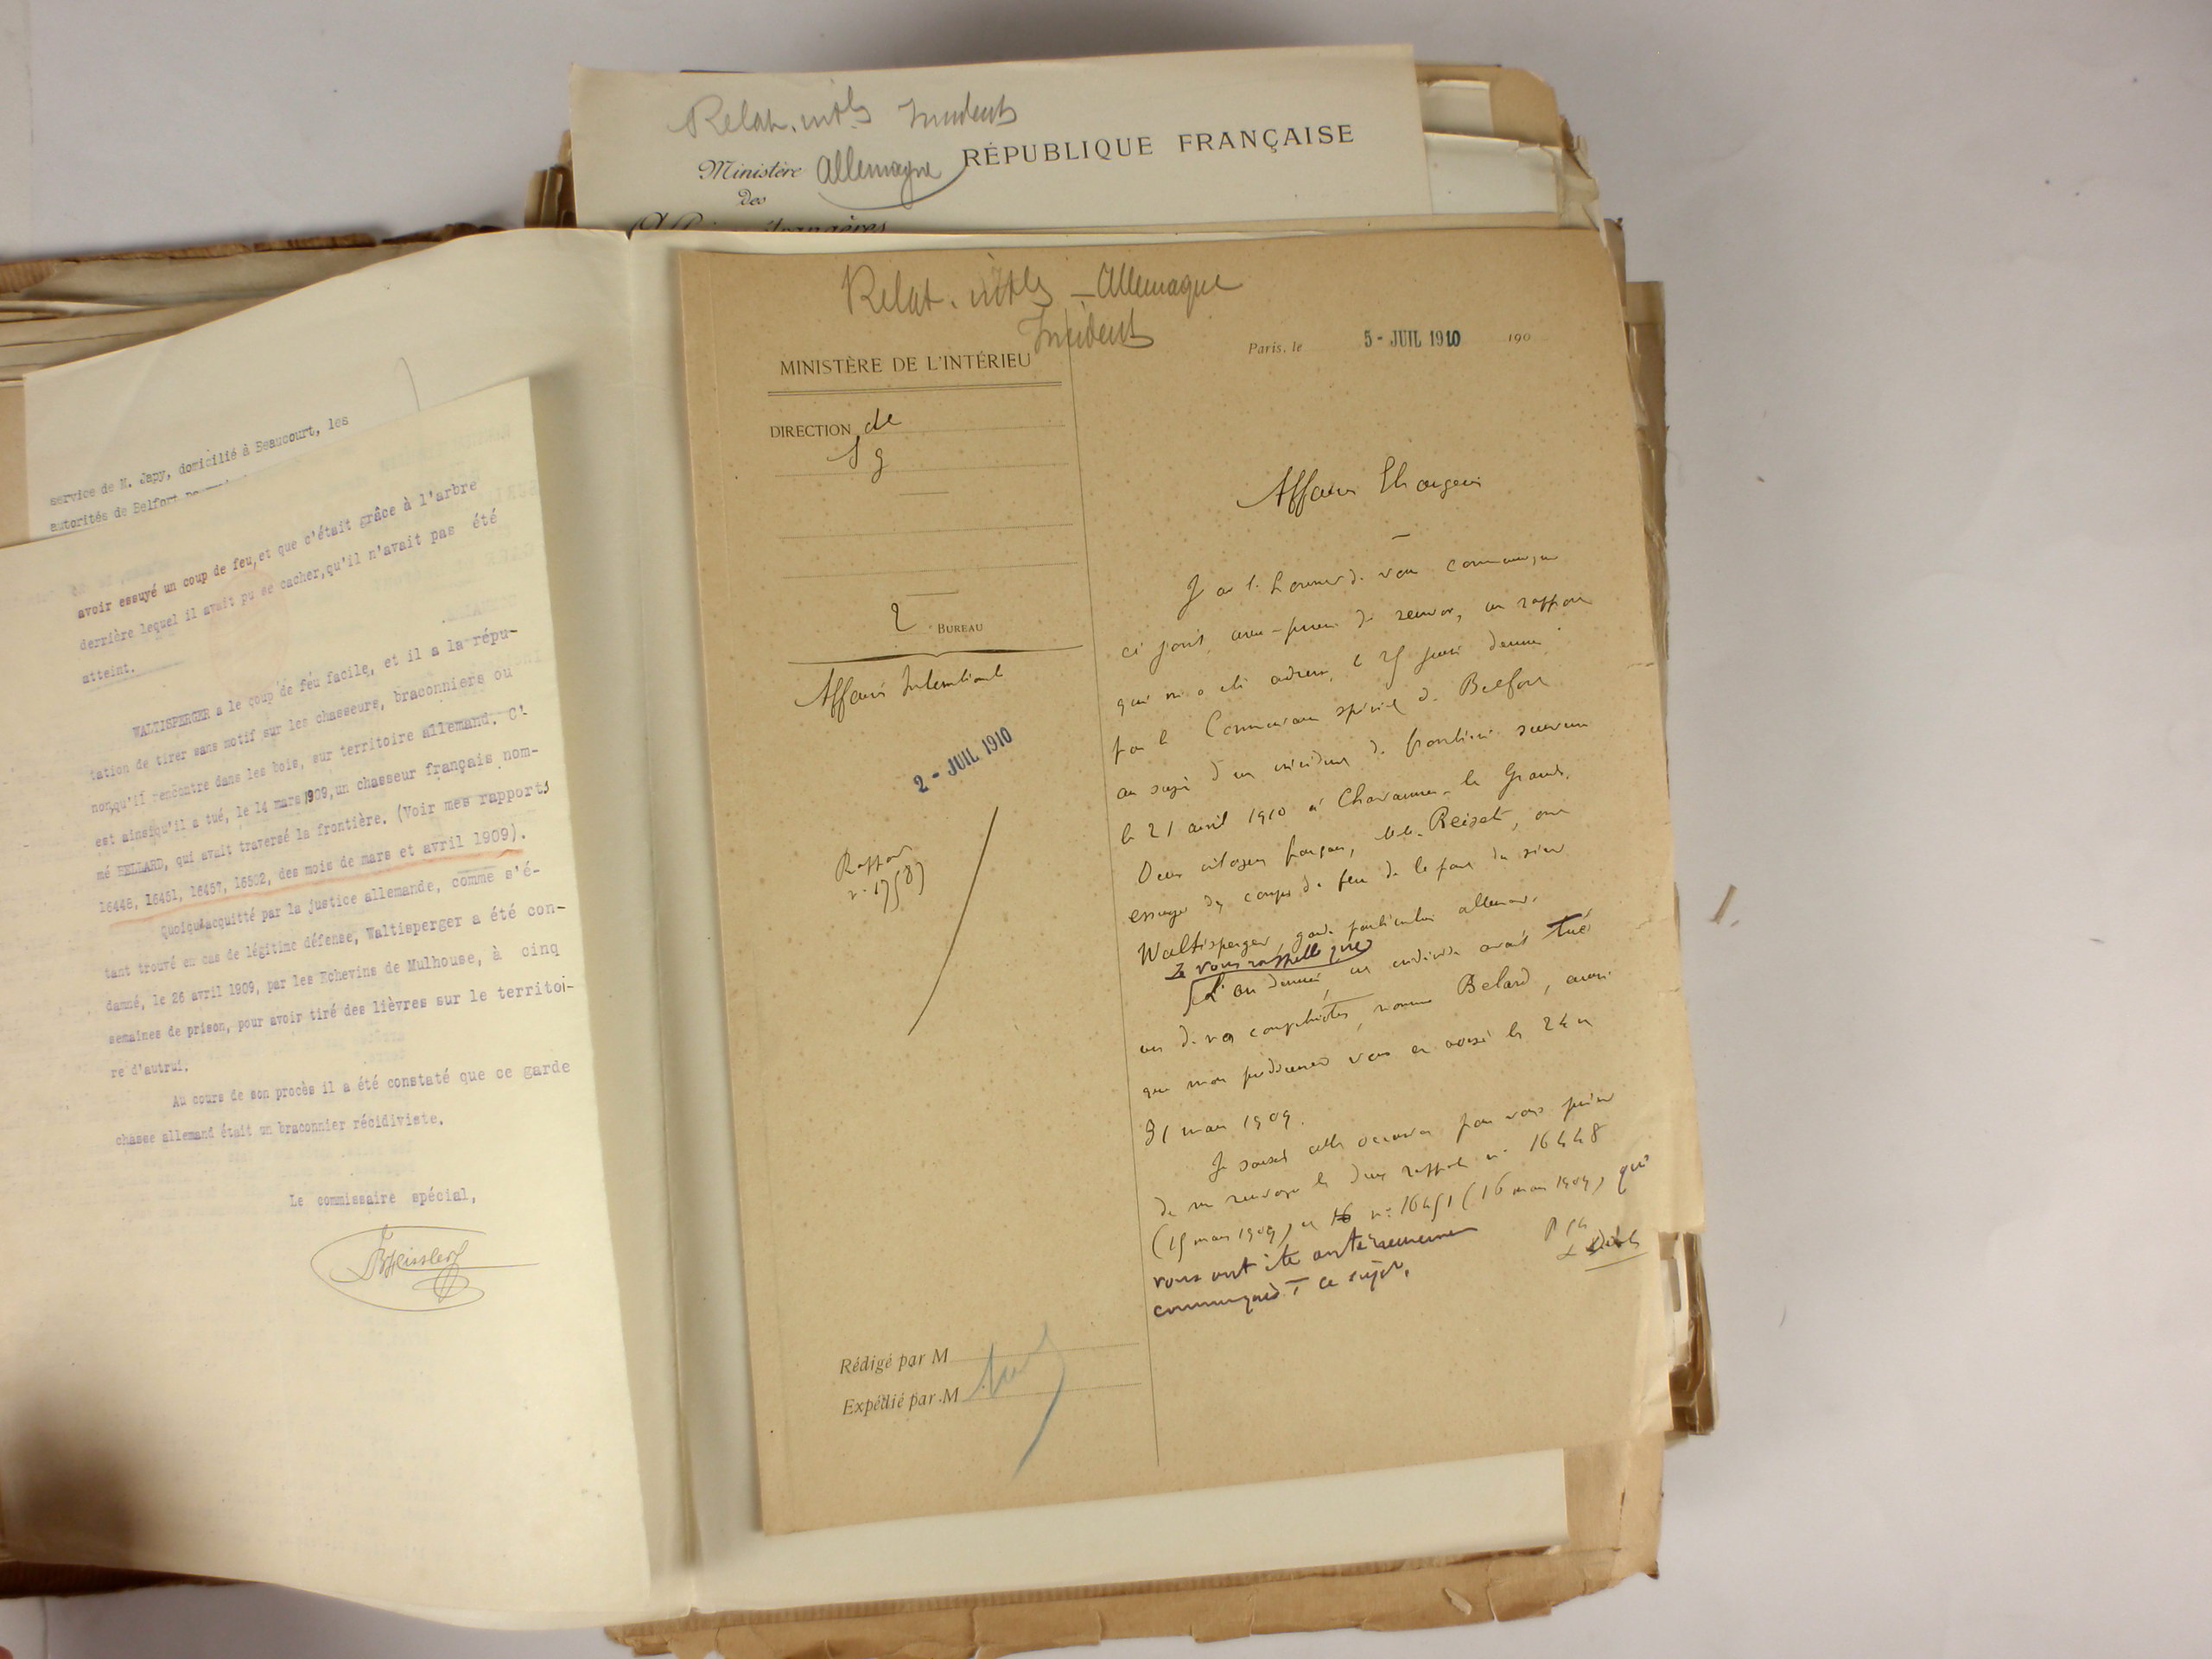 Relat. intles Incidents
Allemagne
RÉPUBLIQUE FRANÇAISE
Ministère
des
service de M. Japy, domicilié à Beaucourt, les
autorités de Belfort
avoir essuyé un coup de feu, et que c'était grâce à l'arbre
derrière lequel il avait pu se cacher, qu'il n'avait pas été
atteint.
WALTISPERGER a le coup de feu facile, et il a la répu-
tation de tirer sans motif sur les chasseurs, braconniers ou
non, qu'il rencontre dans les bois, sur territoire allemand. C'
est ainsi qu'il a tué, le 14 mars 1909, un chasseur français nom-
mé BELLARD, qui avait traversé la frontière. (Voir mes rapports
16448, 16451, 16457, 16502, des mois de mars et avril 1909).
Quoiqu'acquitté par la justice allemande, comme s'é-
tant trouvé en cas de légitime défense, Waltisperger a été con-
damné, le 26 avril 1909, par les Echevins de Mulhouse, à cinq
semaines de prison, pour avoir tiré des lièvres sur le territoi-
re d'autrui.
Au cours de son procès il a été constaté que ce garde
chasse allemand était un braconnier récidiviste.
Le commissaire spécial,
Relat. intles - Allemagne
Incidents
MINISTÈRE DE L'INTÉRIEU
DIRECTION de
S g
2 BUREAU
2 - JUIL 1910
Rapport
Rédigé par M
Expédié par M
Paris, le 5 - JUIL 1910 190
Affaires Etrangères
J'ai l'honneur de vous communiquer
ci joint, avec prière de renvoi, un rapport
qui m'a été adressé, le 25 juin dernier
par le Commissaire spécial de Belfort
au sujet d'un incident de frontière survenu
le 21 avril 1910 à Chavannes-les-Grands.
Deux citoyens français, MM. Reiset, ont
essuyé des coups de feu de la part du sieur
Waltisperger, garde particulier allemand.
Je vous rappelle que
l'an dernier, cet individu avait tué
un de nos compatriotes, nommé Belard, ainsi
que mon prédécesseur vous en avisé les 24 et
31 mars 1909.
Je saisis cette occasion pour vous prier
de me renvoyer les deux rapports n° 16448
(15 mars 1909) et n° 16451 (16 mars 1909) qui
vous ont été antérieurement
communiqués à ce sujet.